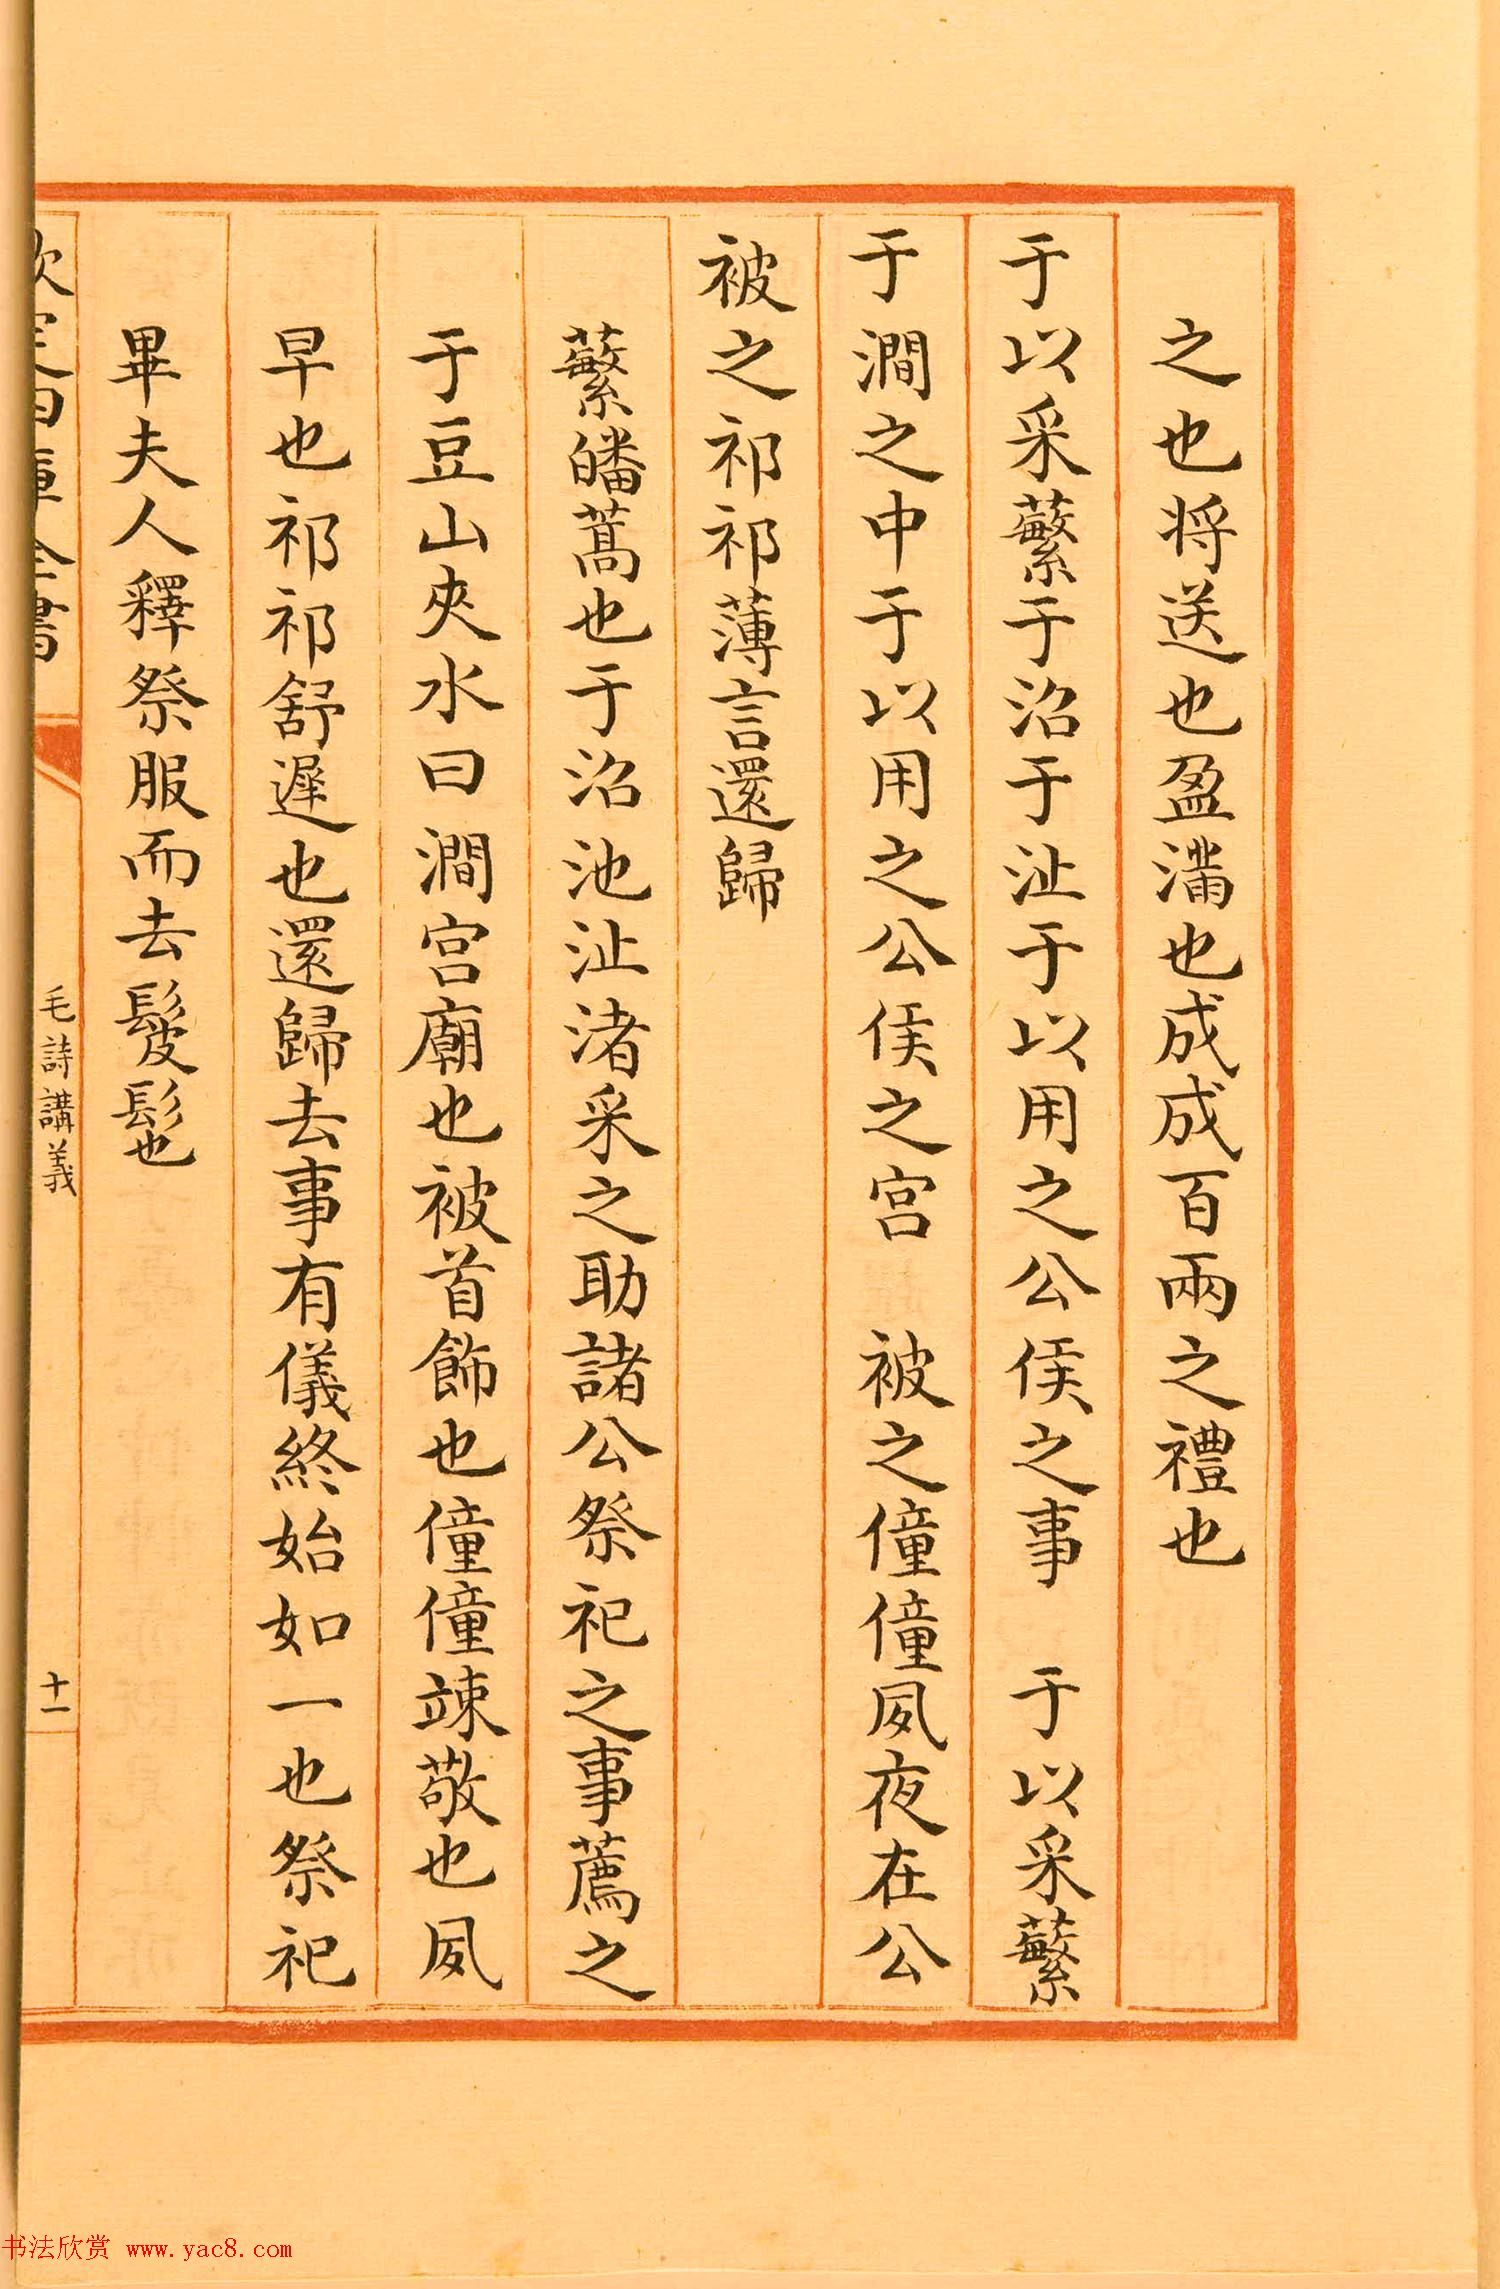 之也将送也盈滿也成成百兩之禮也
于以采蘩于沼于沚于以用之公侯之事　于以采蘩
于澗之中于以用之公侯之宮　被之僮僮夙夜在公
被之祁祁薄言還歸
蘩皤蒿也于沼池沚渚采之助諸公祭祀之事薦之
于豆山夾水曰澗宮廟也被首飾也僮僮竦敬也夙
早也祁祁舒遲也還歸去事有儀終始如一也祭祀
畢夫人釋祭服而去髲髢也
欽定四庫全書
毛詩講義
十一
书法欣赏 www.yac8.com